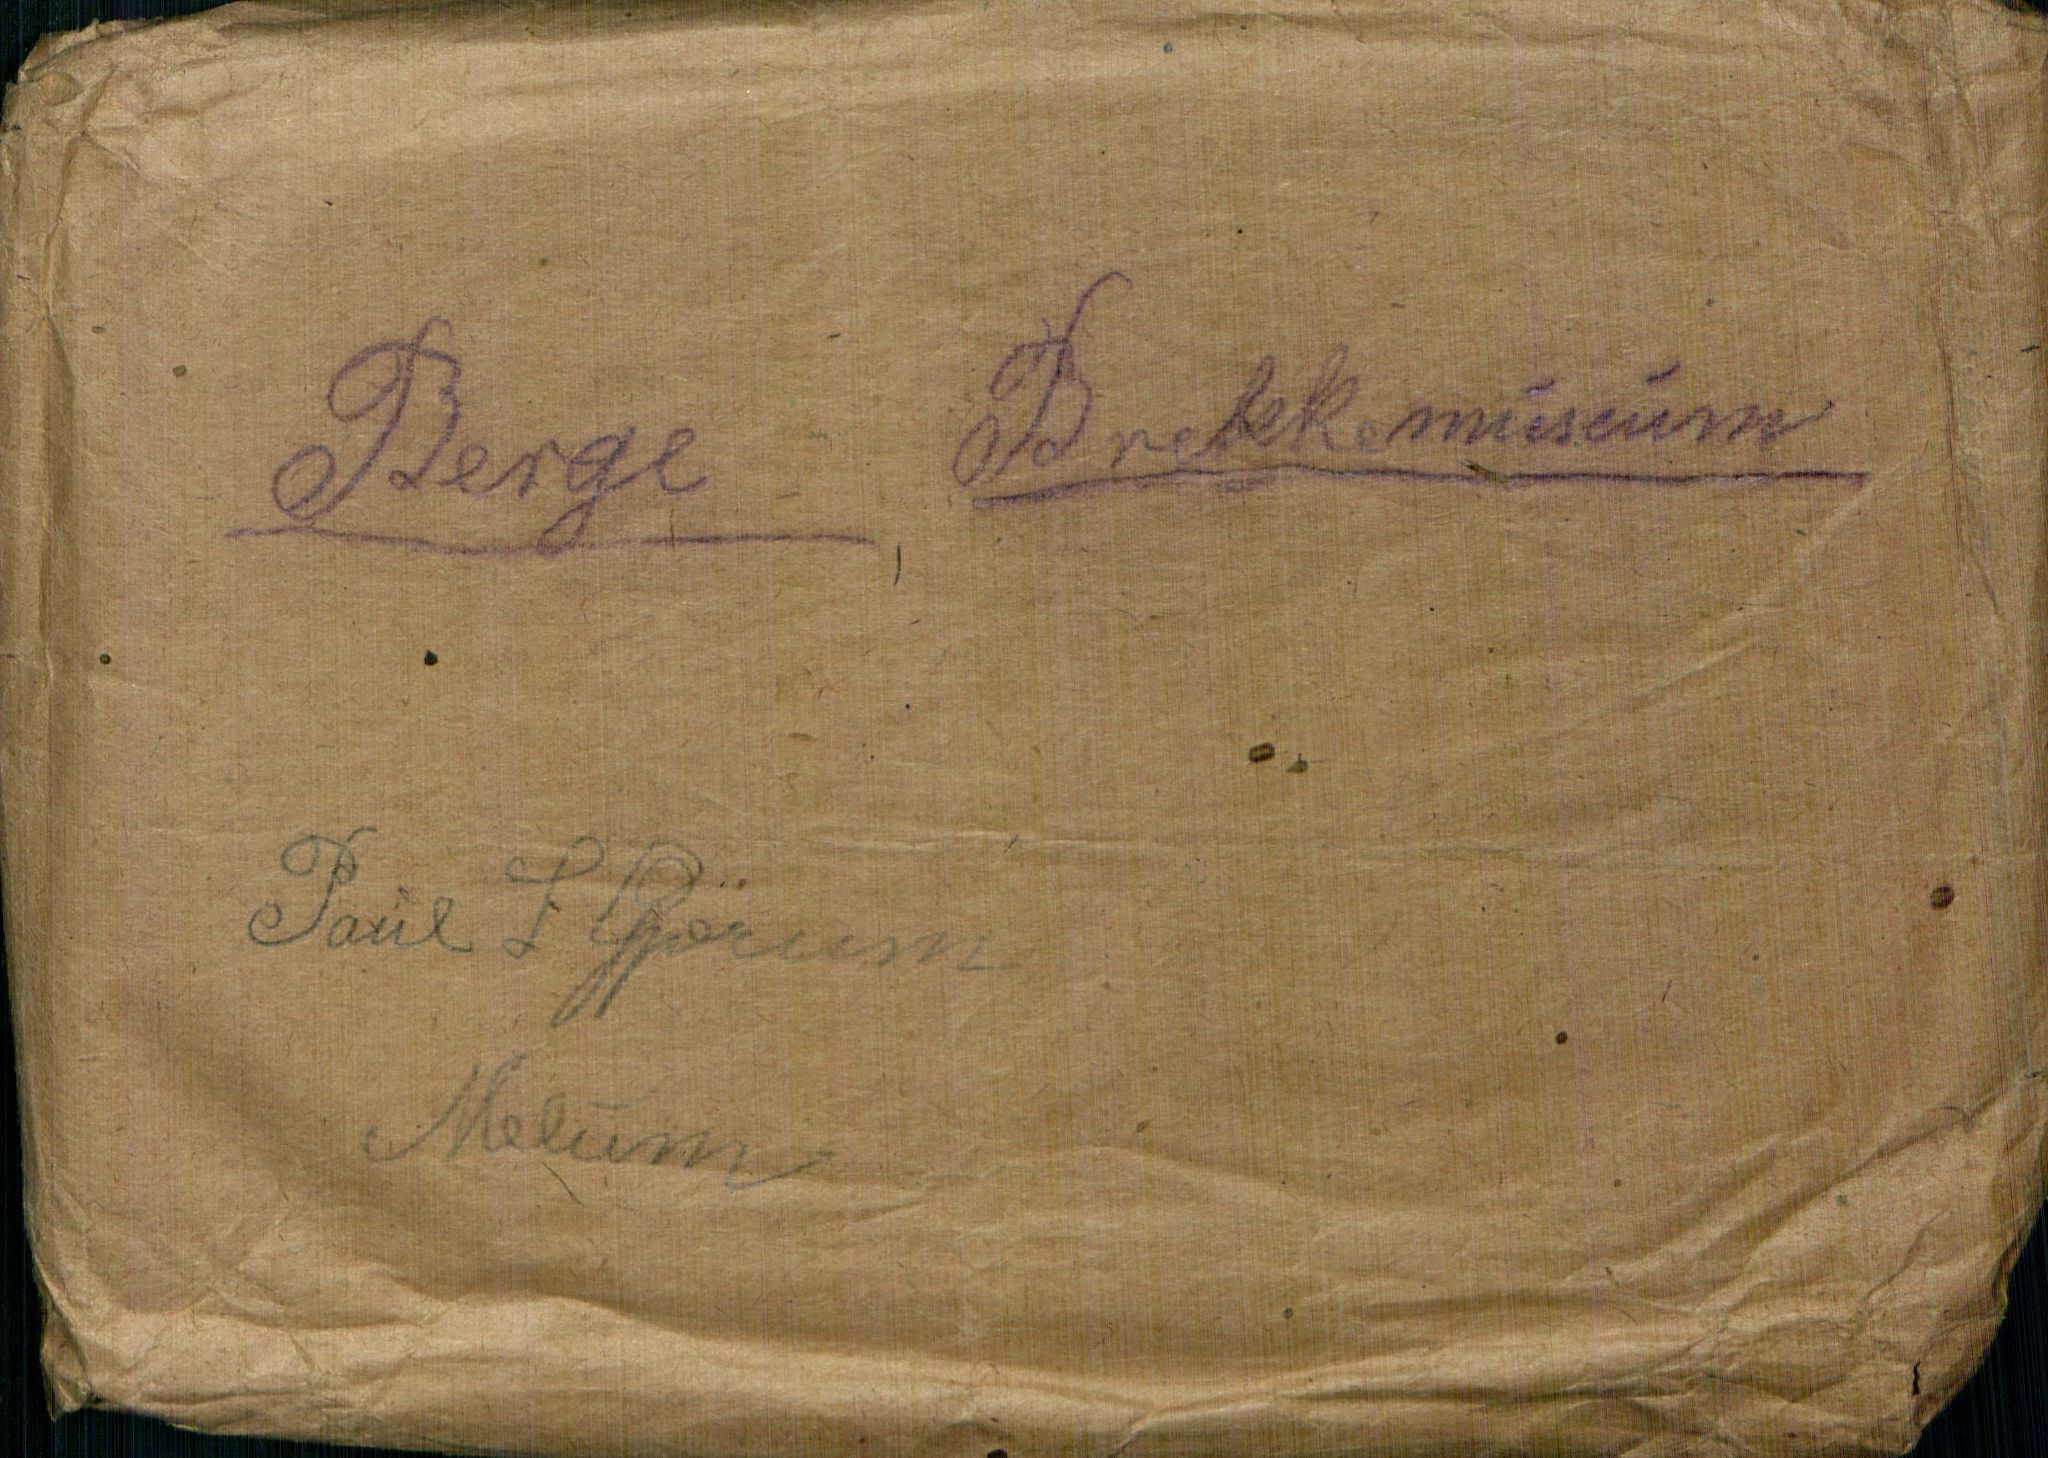 Berge Brekkemuseum
Paul S Gjørum
Melum